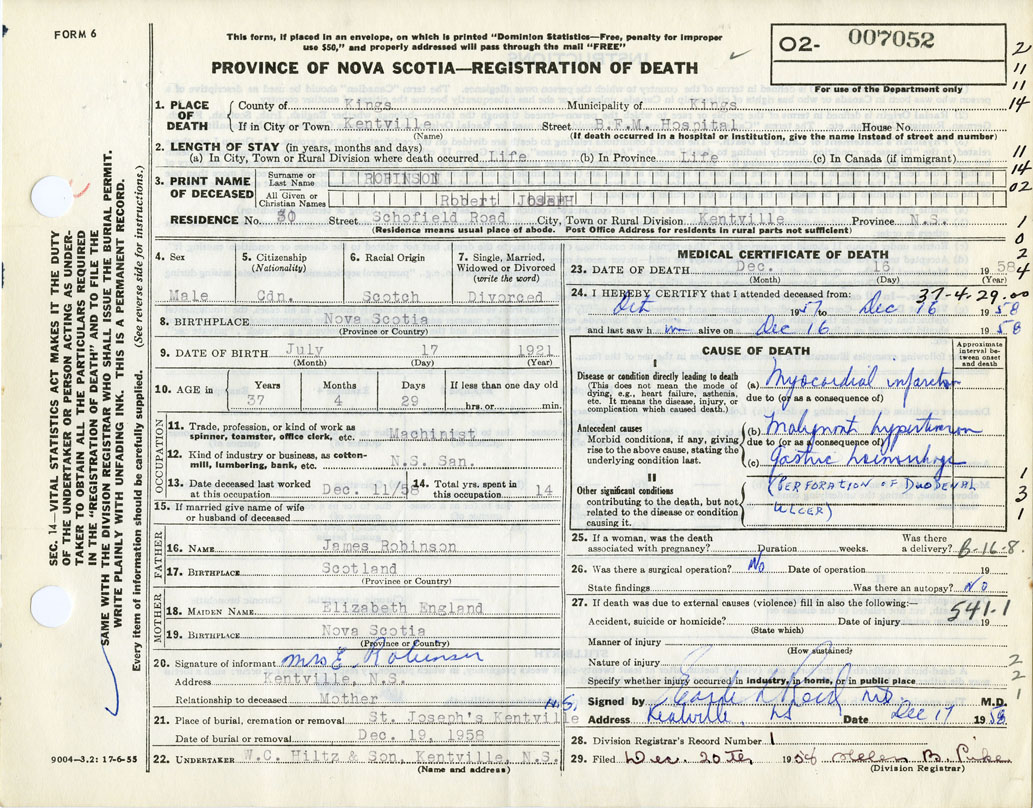 FORM 6
This form, if placed in an envelope, on which is printed "Dominion Statistics—Free, penalty for improper
use $50," and properly addressed will pass through the mail "FREE"
PROVINCE OF NOVA SCOTIA—REGISTRATION OF DEATH
02- 007052
For use of the Department only
2
11
11
14
11
14
02
1
0
2
4
1. PLACE OF DEATH
County of Kings Municipality of Kings
If in City or Town Kentville Street B.F.M. Hospital House No.
(Name) (If death occurred in a hospital or institution, give the name instead of street and number)
2. LENGTH OF STAY (in years, months and days)
(a) In City, Town or Rural Division where death occurred Life (b) In Province Life (c) In Canada (if immigrant)
3. PRINT NAME OF DECEASED
Surname or Last Name ROBINSON
All Given or Christian Names Robert JOSEPH
RESIDENCE No. 30 Street Schofield Road City, Town or Rural Division Kentville Province N.S.
(Residence means usual place of abode. Post Office Address for residents in rural parts not sufficient)
4. Sex
Male
5. Citizenship (Nationality)
Cdn.
6. Racial Origin
Scotch
7. Single, Married, Widowed or Divorced (write the word)
Divorced
8. BIRTHPLACE Nova Scotia
(Province or Country)
9. DATE OF BIRTH July 17 1921
(Month) (Day) (Year)
10. AGE in
Years Months Days If less than one day old
37 4 29 hrs. or min.
OCCUPATION
11. Trade, profession, or kind of work as spinner, teamster, office clerk, etc. Machinist
12. Kind of industry or business, as cotton-mill, lumbering, bank, etc. N.S. San.
13. Date deceased last worked at this occupation Dec. 11/58
14. Total yrs. spent in this occupation 14
15. If married give name of wife or husband of deceased
FATHER
16. NAME James Robinson
17. BIRTHPLACE Scotland
(Province or Country)
MOTHER
18. MAIDEN NAME Elizabeth England
19. BIRTHPLACE Nova Scotia
(Province or Country)
20. Signature of informant Mrs E. Robinson
Address Kentville, N.S.
Relationship to deceased Mother
21. Place of burial, cremation or removal St. Joseph's Kentville N.S.
Date of burial or removal Dec. 19, 1958
22. UNDERTAKER W.C. Hiltz & Son, Kentville, N.S.
(Name and address)
MEDICAL CERTIFICATE OF DEATH
23. DATE OF DEATH Dec. 16 1958
(Month) (Day) (Year)
37-4-29.00
24. I HEREBY CERTIFY that I attended deceased from:
Oct 1957 to Dec 16 1958
and last saw him alive on Dec 16 1958
CAUSE OF DEATH
Approximate interval between onset and death
I
Disease or condition directly leading to death
(This does not mean the mode of dying, e.g., heart failure, asthenia, etc. It means the disease, injury, or complication which caused death.)
(a) Myocardial infarction
due to (or as a consequence of)
Antecedent causes
Morbid conditions, if any, giving rise to the above cause, stating the underlying condition last.
(b) Malignant hypertension
due to (or as a consequence of)
(c) Gastric haemorrhage
II
Other significant conditions
contributing to the death, but not related to the disease or condition causing it.
(PERFORATION OF DUODENAL
ULCER)
1
3
1
25. If a woman, was the death associated with pregnancy? Duration weeks. Was there a delivery? B-16-8.
26. Was there a surgical operation? No Date of operation 19
State findings Was there an autopsy? No
27. If death was due to external causes (violence) fill in also the following:—
541-1
Accident, suicide or homicide? Date of injury 19
(State which)
Manner of injury
(How sustained)
Nature of injury
Specify whether injury occurred in industry, in home, or in public place
2
2
1
Signed by M.D.
Address Kentville, NS Date Dec 17 1958
28. Division Registrar's Record Number 1
29. Filed Dec. 20th 1958 Helen B. Pike
(Division Registrar)
SEC. 14—VITAL STATISTICS ACT MAKES IT THE DUTY
OF THE UNDERTAKER OR PERSON ACTING AS UNDER-
TAKER TO OBTAIN ALL THE PARTICULARS REQUIRED
IN THE "REGISTRATION OF DEATH" AND TO FILE THE
SAME WITH THE DIVISION REGISTRAR WHO SHALL ISSUE THE BURIAL PERMIT.
WRITE PLAINLY WITH UNFADING INK. THIS IS A PERMANENT RECORD.
Every item of information should be carefully supplied. (See reverse side for instructions.)
9004—3.2: 17-6-55